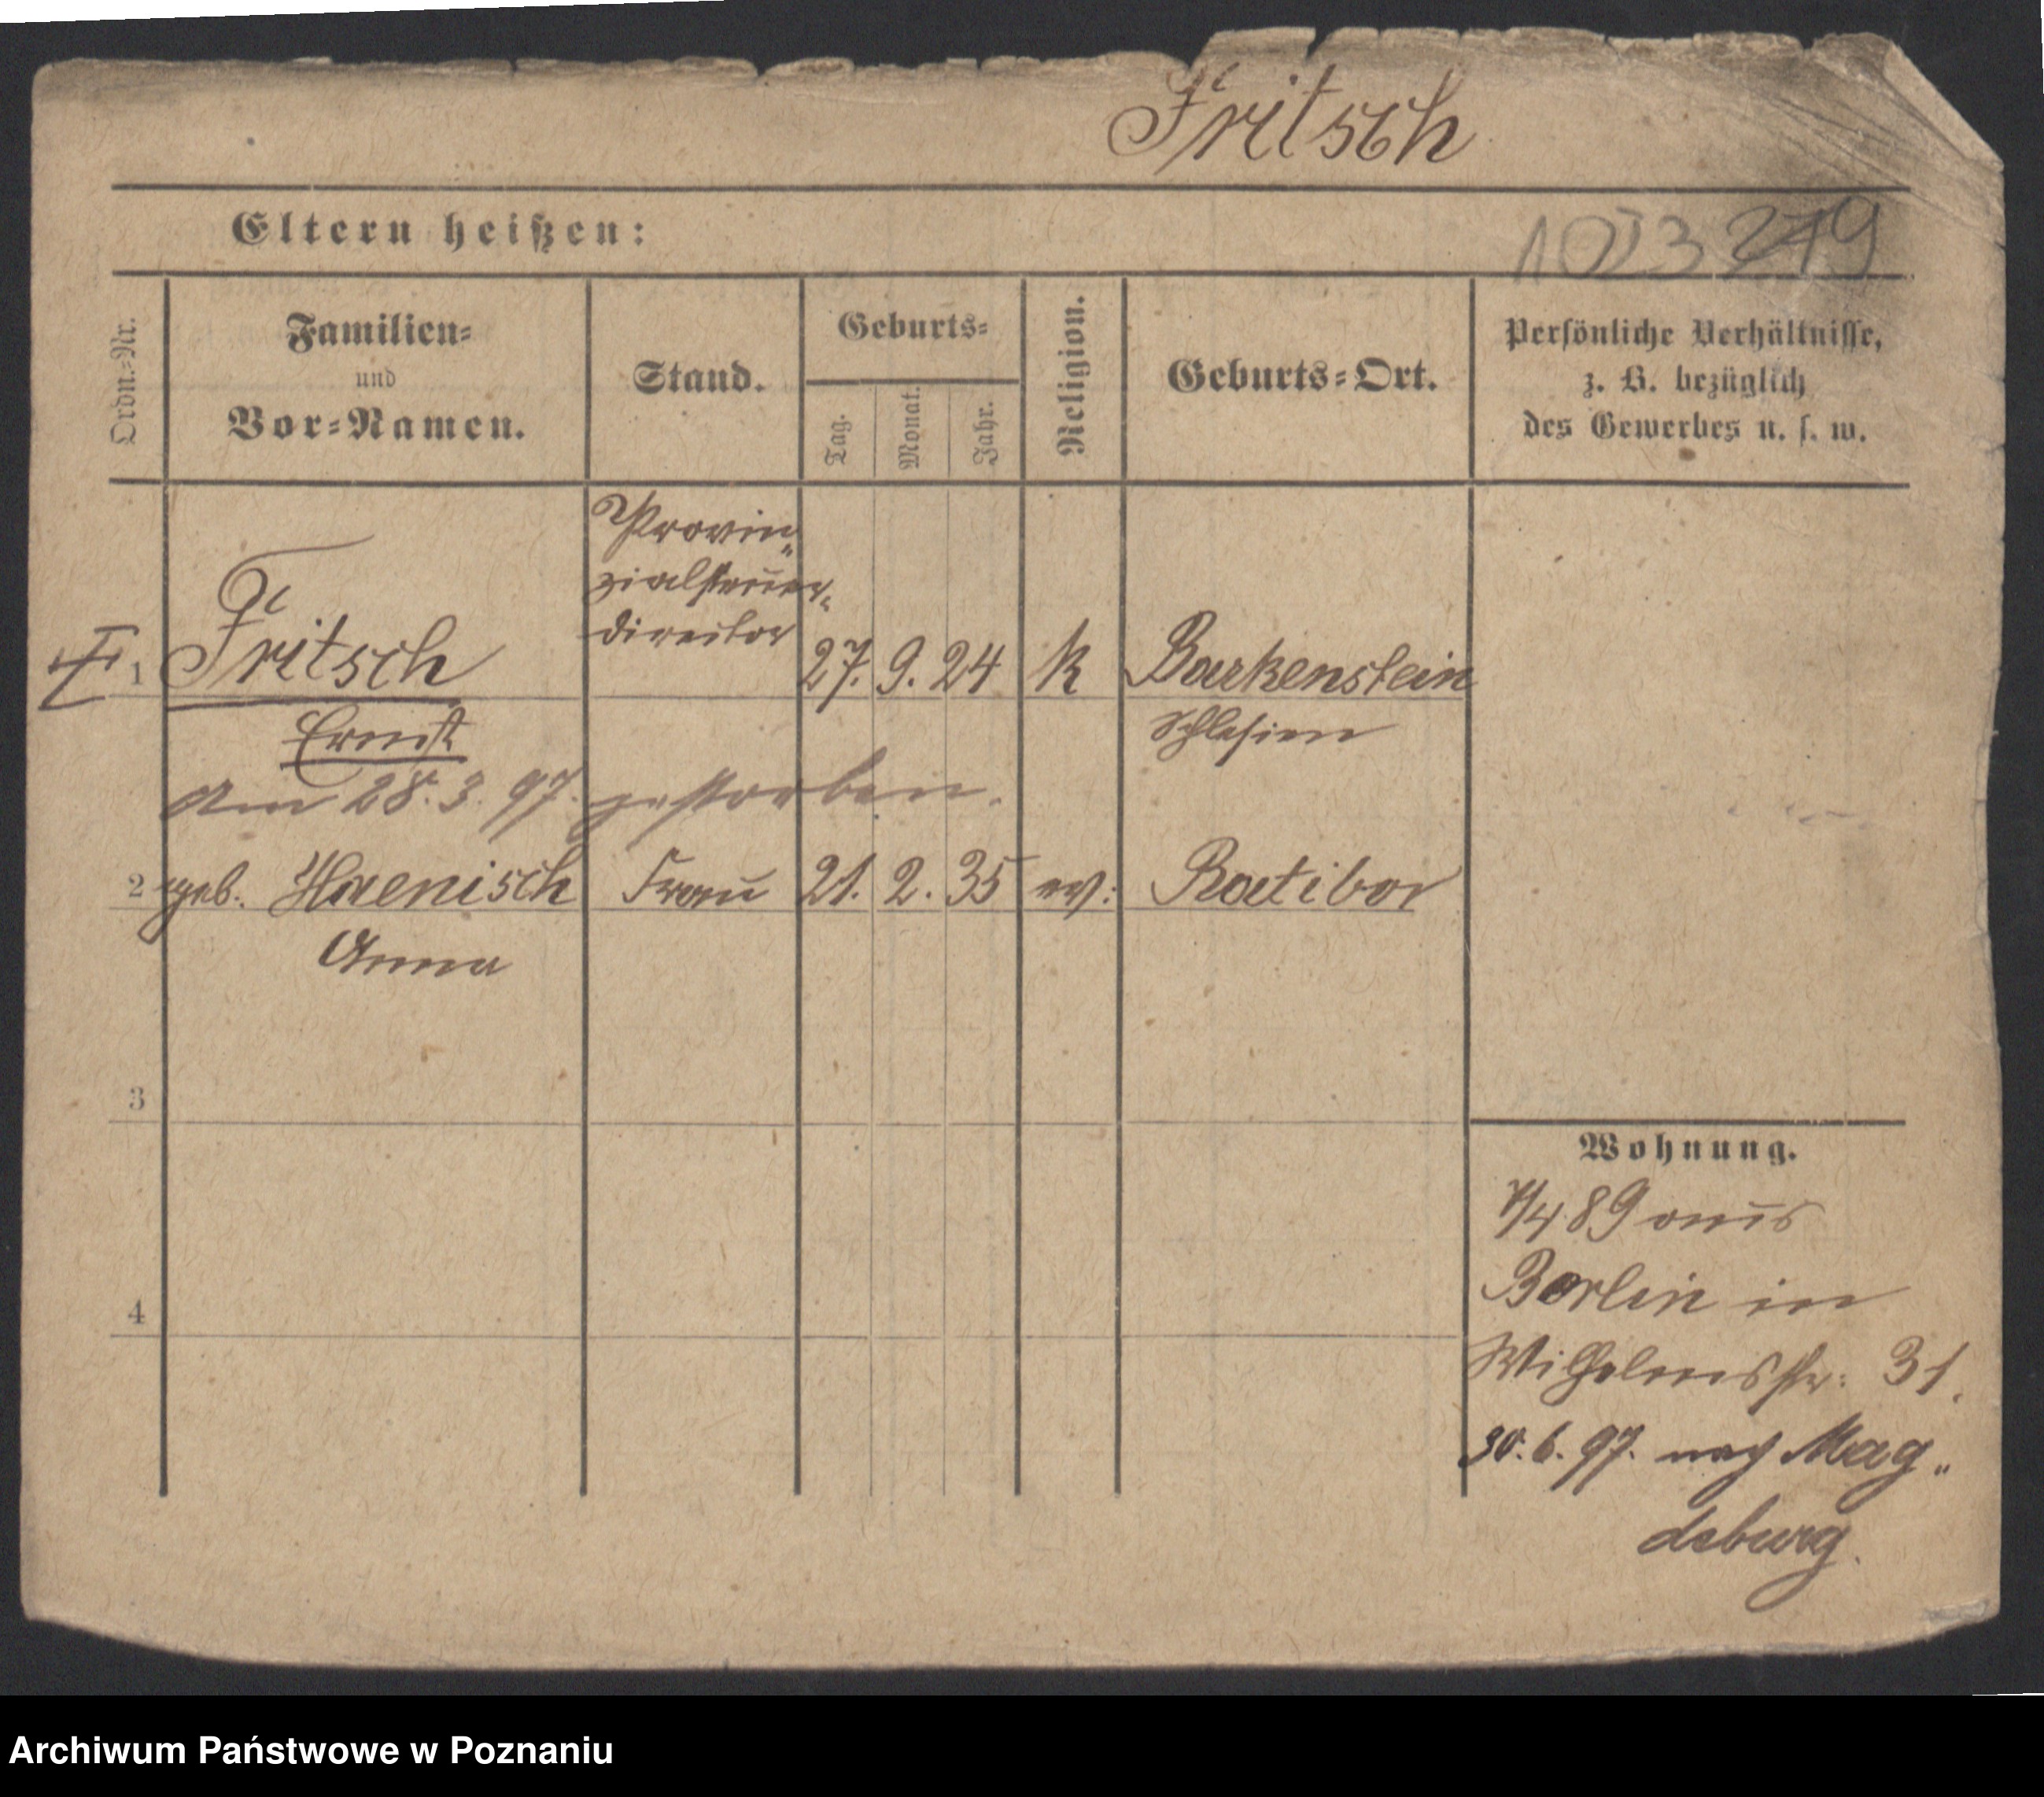 Fritsch
Eltern heißen:
Ordn.=Nr.
Familien=
und
Vor=Namen.
Stand.
Geburts=
Tag.
Monat.
Jahr.
Religion.
Geburts=Ort.
Persönliche Verhältnisse,
z. B. bezüglich
des Gewerbes u. s. w.
Provin„
zialsteuer„
director
1 Fritsch 27. 9. 24 k Barkenstein
Ernst Schlesien
Am 28. 3. 97. gestorben.
2 geb. Haenisch Frau 21. 2. 35 ev: Ratibor
Anna
3
4
Wohnung.
1/4 89 aus
Berlin in
Wilhelmstr: 31.
30. 6. 97. nach Mag„
deburg.
Archiwum Państwowe w Poznaniu